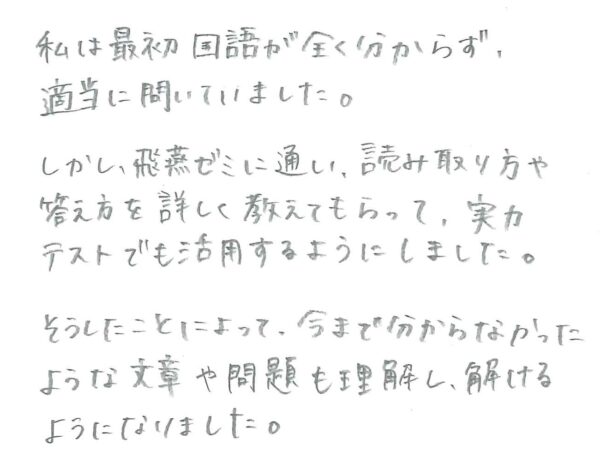 私は最初国語が全く分からず、
適当に問いていました。
しかし、飛燕ゼミに通い、読み取り方や
答え方を詳しく教えてもらって、実力
テストでも活用するようにしました。
そうしたことによって、今まで分からなかった
ような文章や問題も理解し、解ける
ようになりました。